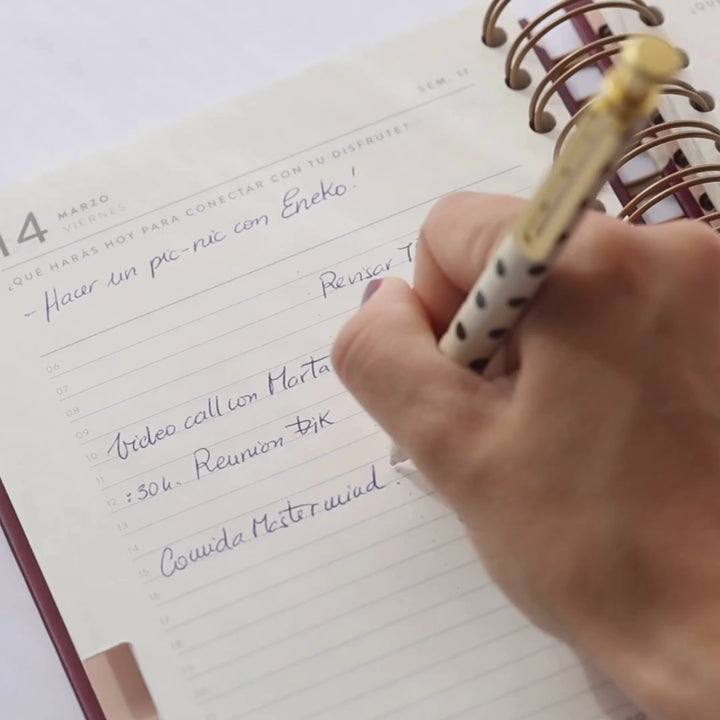 SEM. 11
14 MARZO
VIERNES
¿QUÉ HARÁS HOY PARA CONECTAR CON TU DISFRUTE?
- Hacer un pic-nic con Eneko!
Revisar
06
07
08
09
10 Video call con Marta
11
12 :30h. Reunion
13
14
15 Comida Mastermind
16
17
18
19